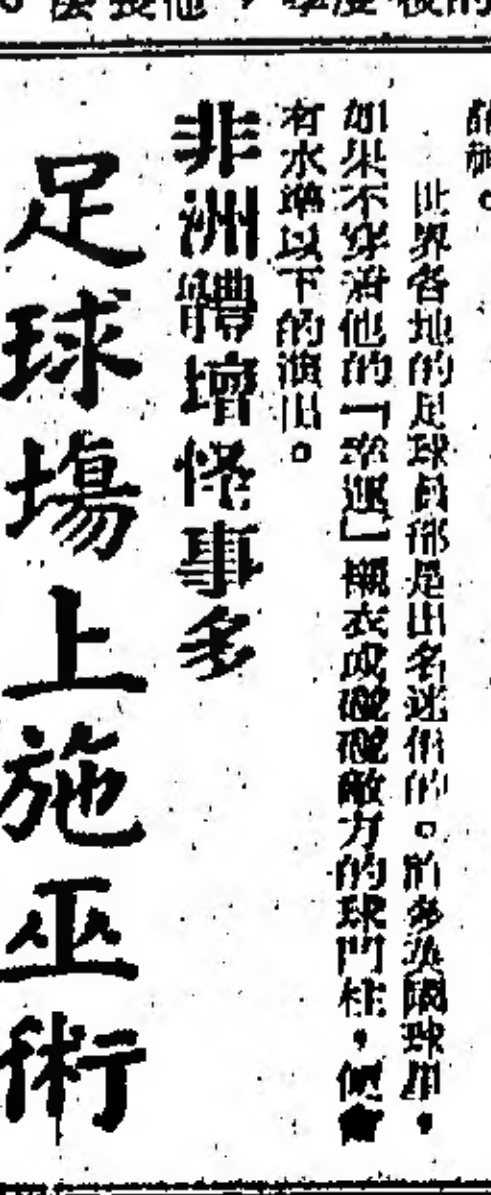 施。
世界各地的足球員都是出名迷信的。許多英國球星，
如果不穿着他的「幸運」襯衣或碰碰敵方的球門柱，便會
有水準以下的演出。
非洲體壇怪事多
足球塲上施巫術